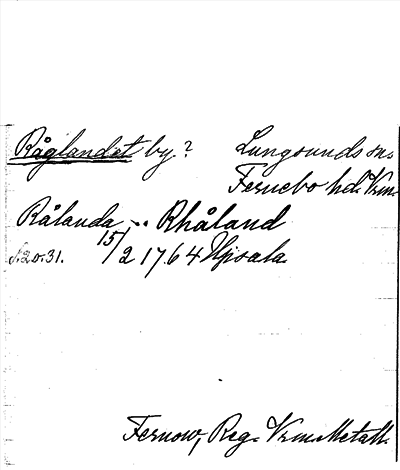 Råglandet by? Lungsunds sn.
Fernebo hd. Vrm.
Rålanda .. Rhåland
s. 20. 31. 15/2 1764 Upsala
Fernow, Reg. Vrm. Metall.